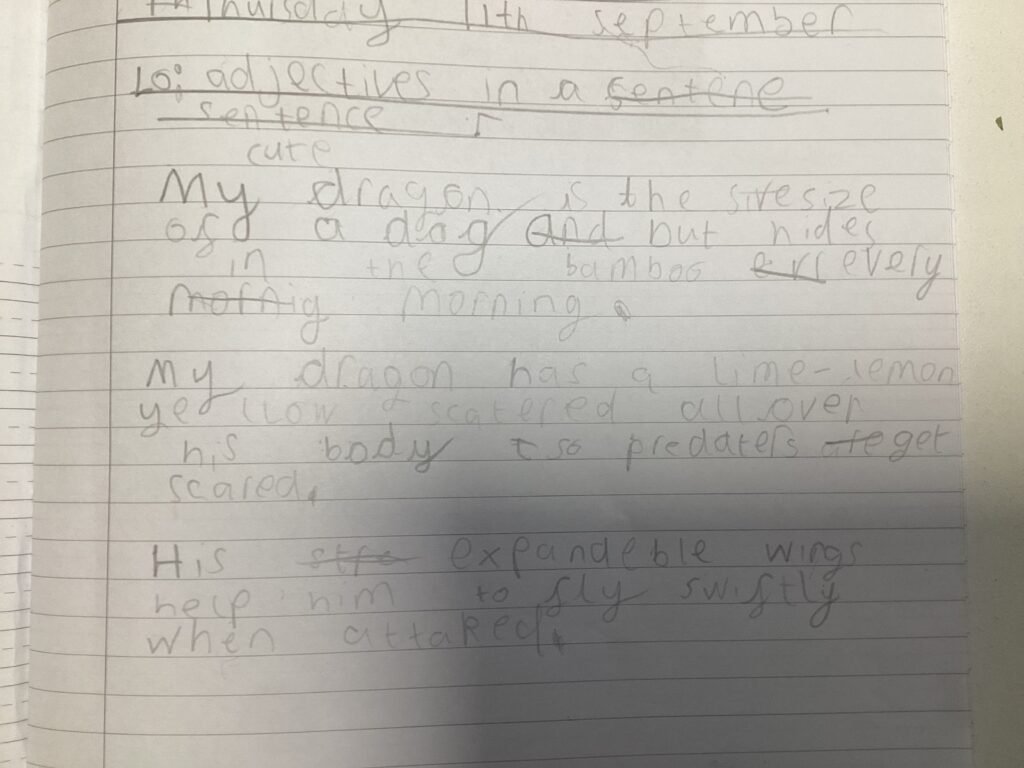 Thursday 11th september
Lo: adjectives in a sentene
sentence
cute
My dragon is the size
of a dog and but hides
in the bamboo every
mornig morning.
My dragon has a lime-lemon
yellow scatered all over
his body so predaters get
scared.
His expandeble wings
help him to fly swiftly
when attaked.